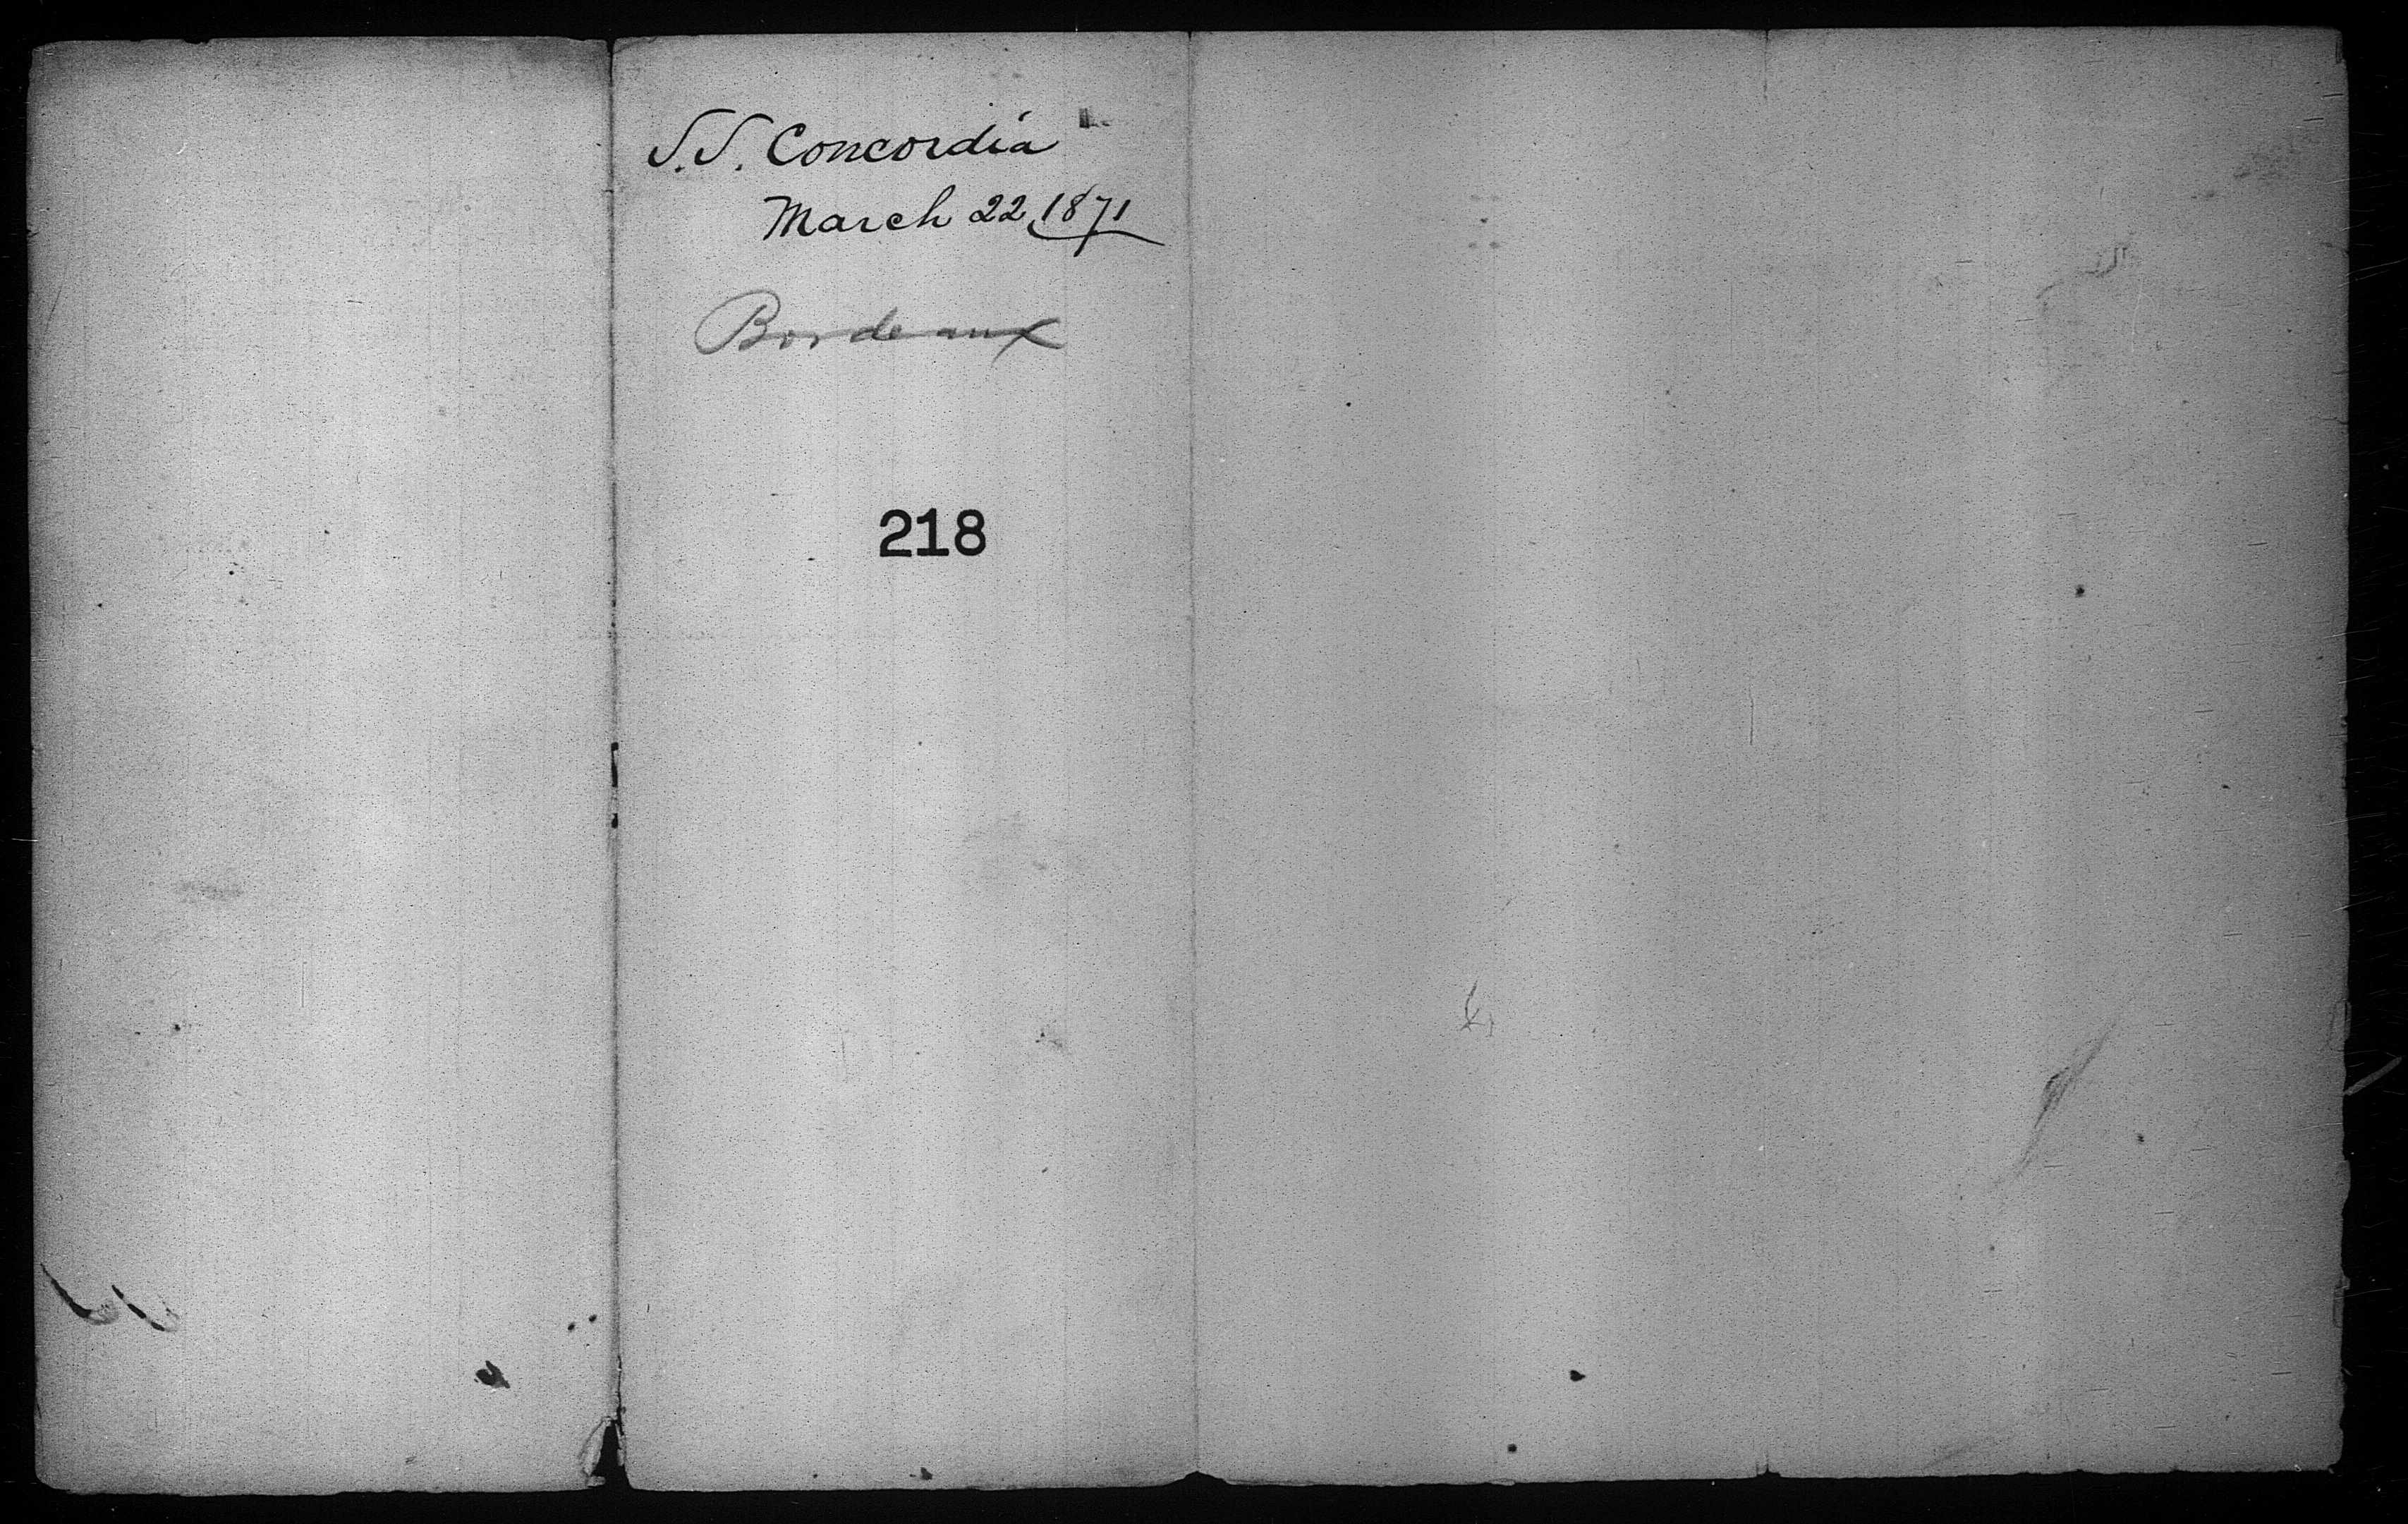 S.S. Concordia
March 22, 1871
Bordeaux
218